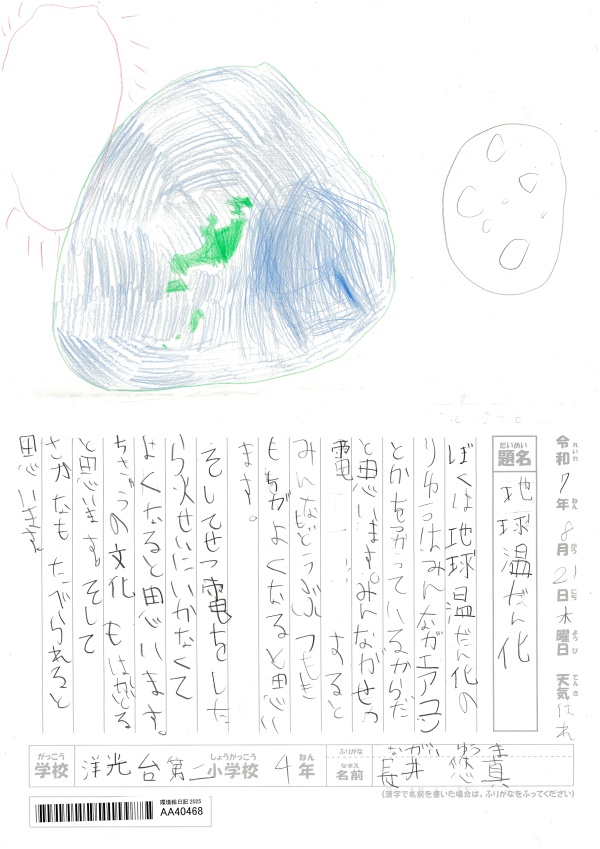 令和7年8月21日木曜日 天気はれ
れいわ ねん がつ にち ようび てんき
だいめい
題名 地球温だん化
ぼくは地球温だん化の
りゆうはみんながエアコン
とかを使っているからだ
と思います。みんながせつ
電 すると
みんなどうぶつもき
もちがよくなると思い
ます。
そしてせつ電をした
ら火せいにいかなくて
よくなると思います。
ちきゅうの文化もはかどる
と思います。そして
さかなもたべられると
思います。
がっこう しょうがっこう ねん ふりがな ながい ゆうま
学校 洋光台第二小学校 4年 なまえ 名前 長井 悠真
(漢字で名前を書いた場合は、ふりがなをふってください)
環境絵日記 2025
AA40468